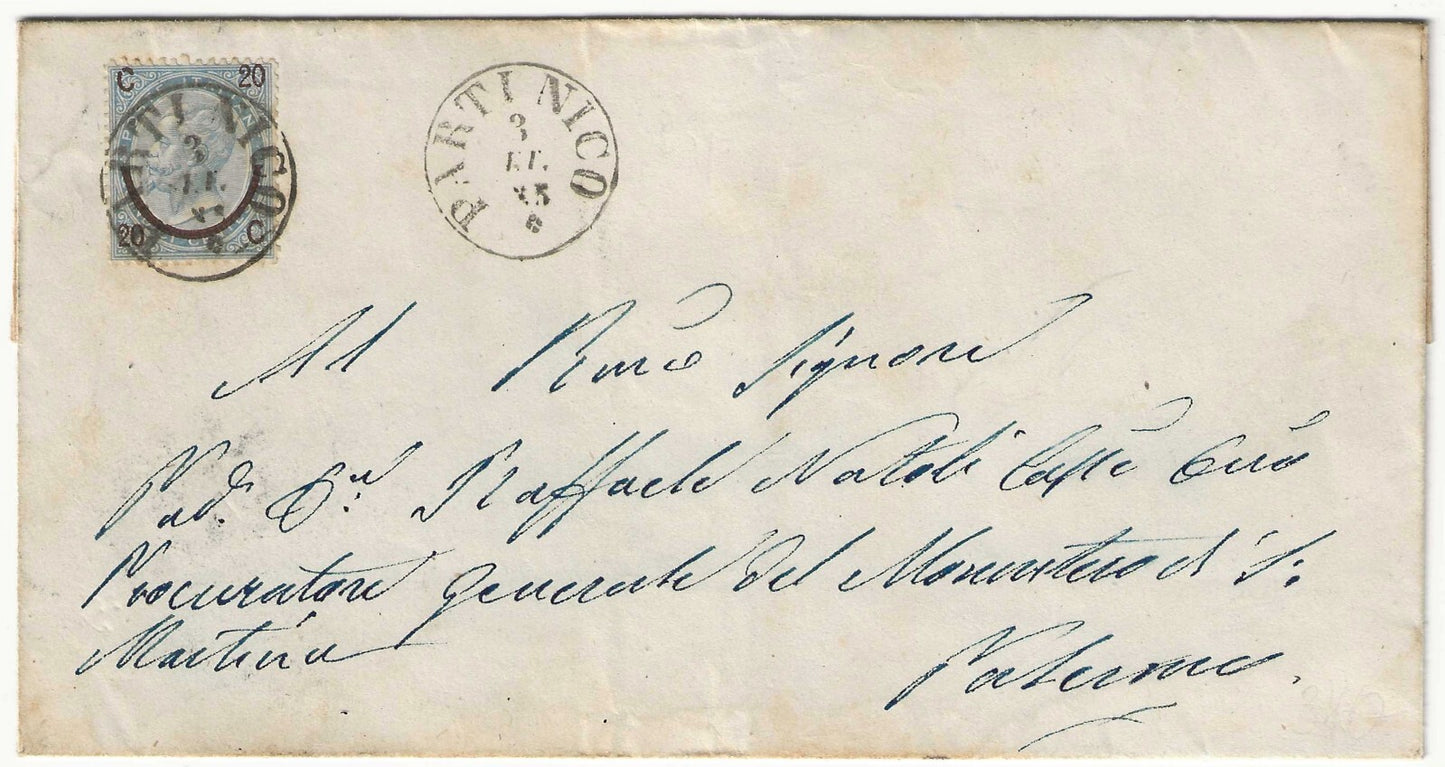 C 20
20 C
PARTINICO
3
PARTINICO
3
Al Rmo Signore
Pad. Dn. Raffaele Natoli
Procuratore Generale del Monistero di S.
Martino
Palermo.